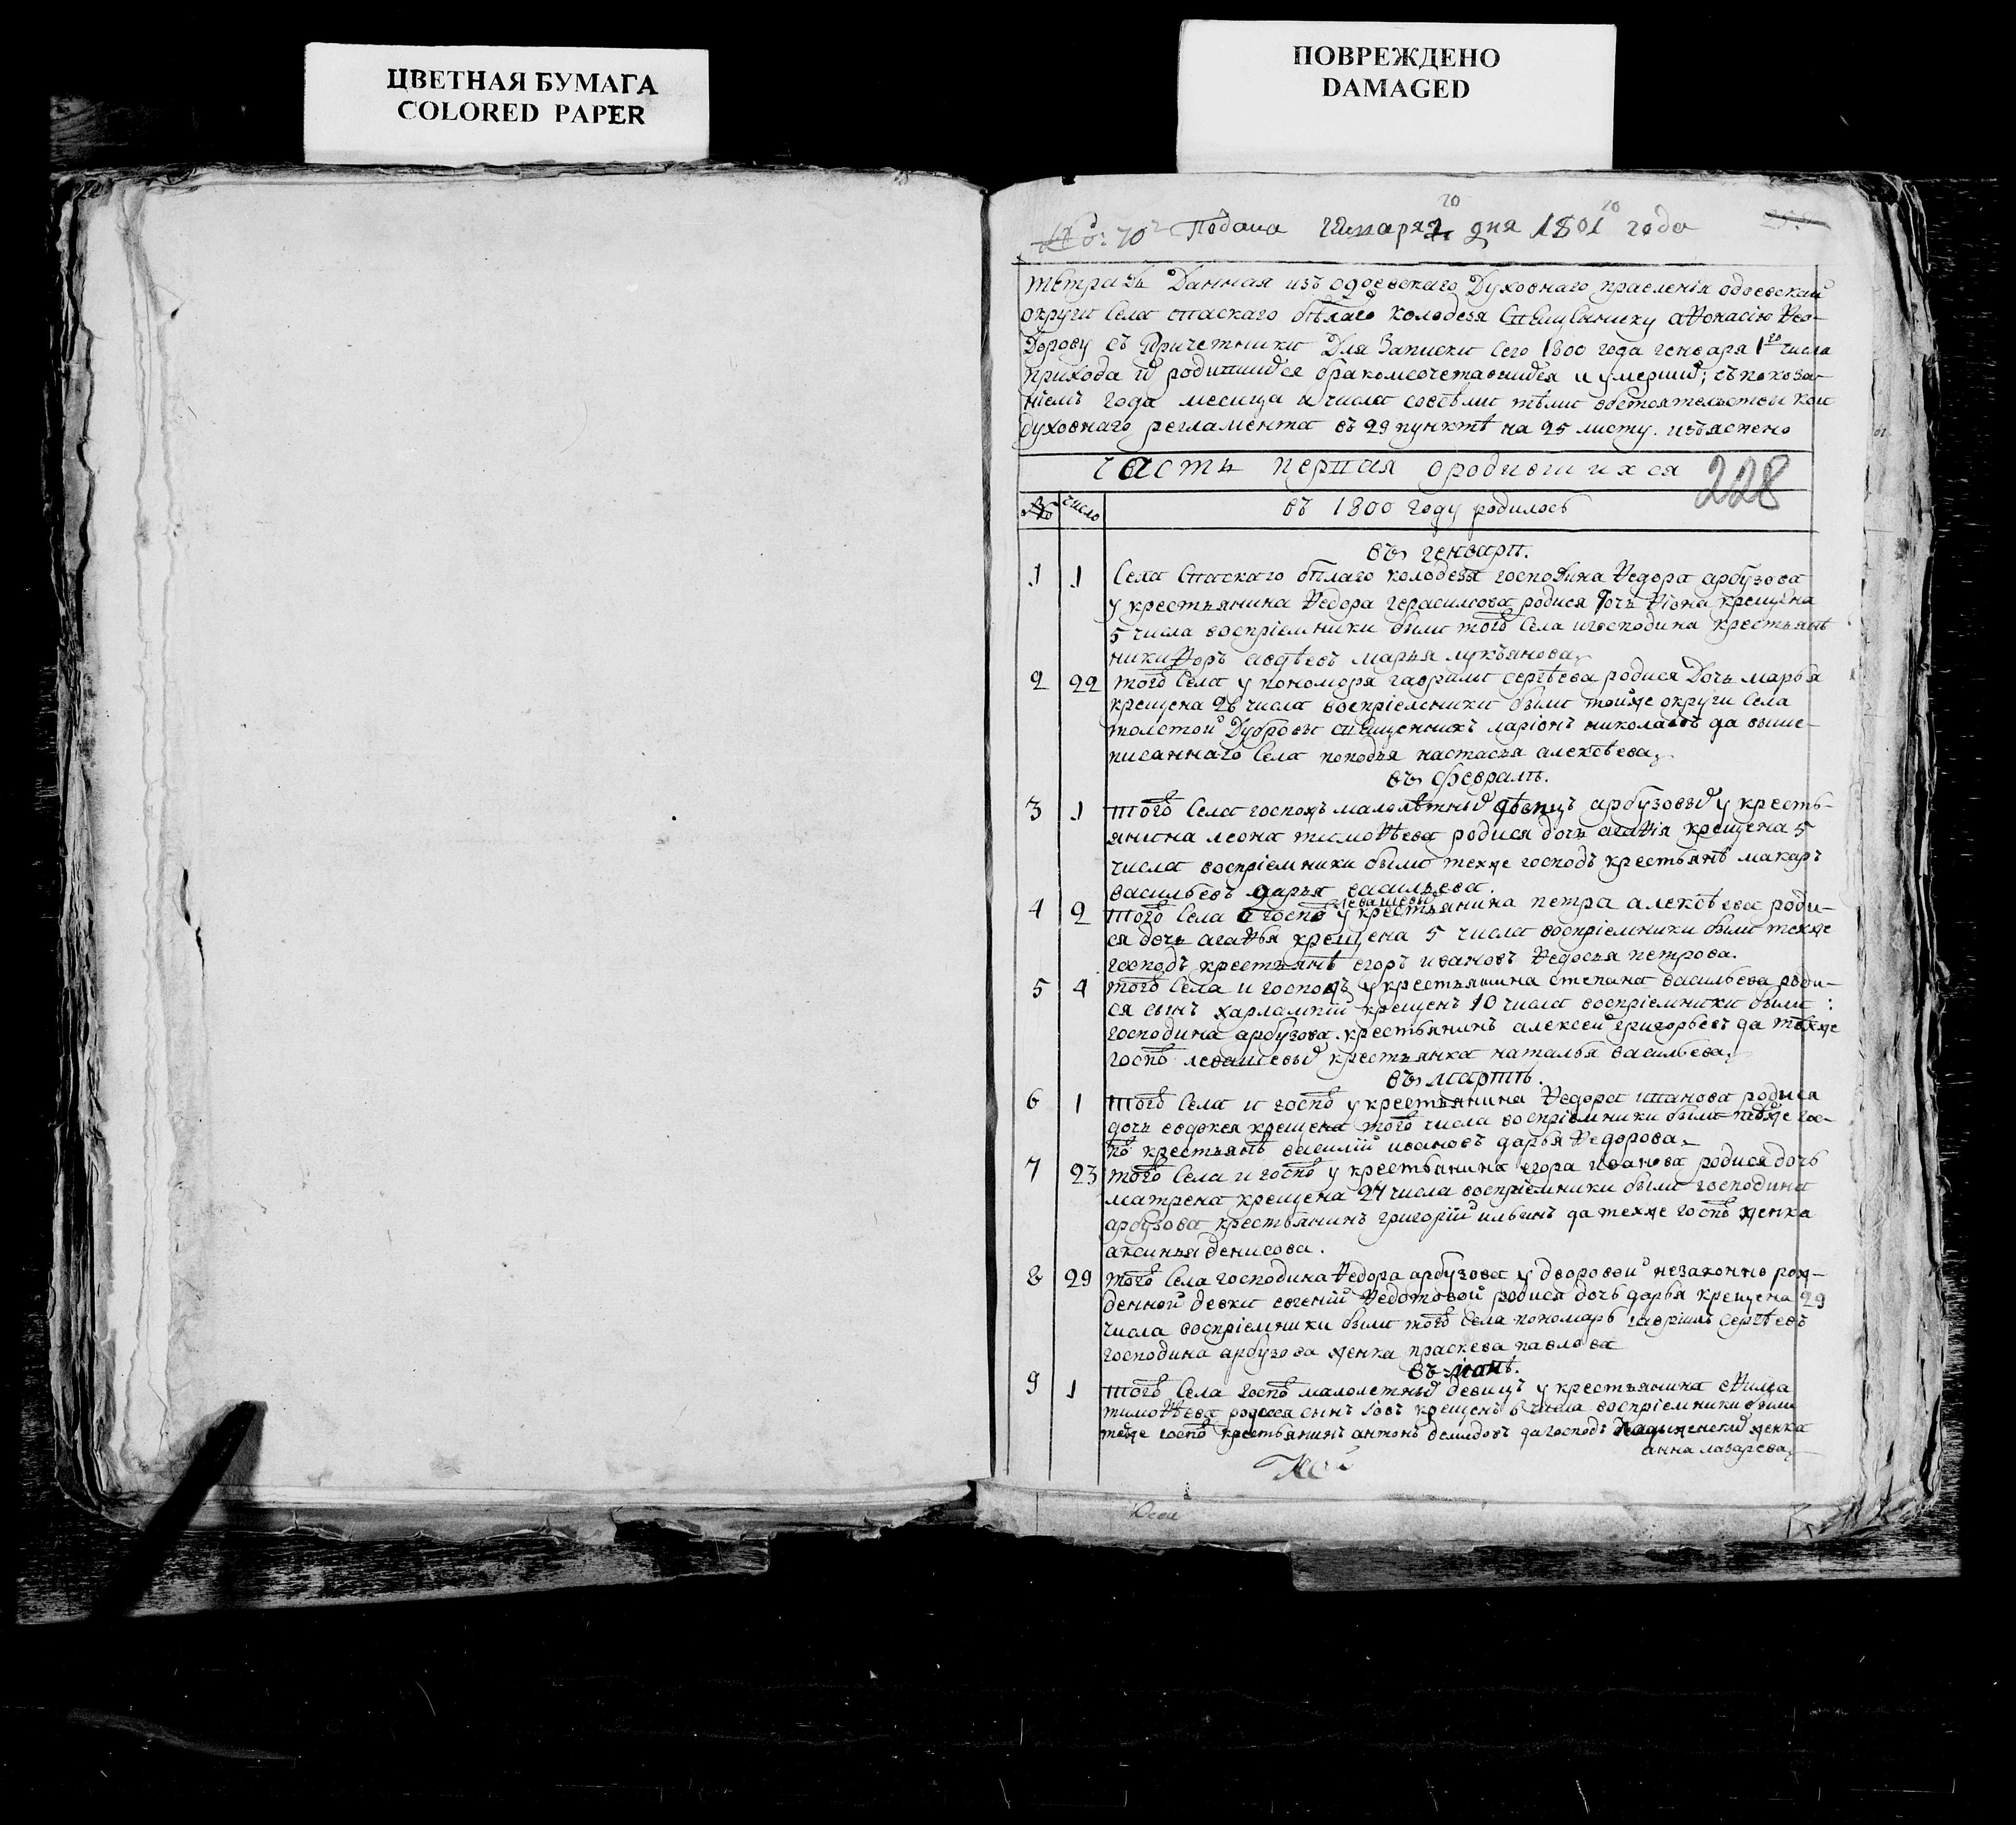 ЦВЕТНАЯ БУМАГА
COLORED PAPER
ПОВРЕЖДЕНО
DAMAGED
Подана генваря 2 го дня 1801 го года
тетрать Данная изъ одоевскаго Духовнаго правленія одоевской
округи Села спаскаго бѣлаго колодезя Сщенънику аѳонасію Ѳео-
дорову съ Причетники Для Записки Сего 1800 года генваря 1го числа
прихода родившихся бракомсочетавшихся и умершихъ; съ показа-
ніемъ года месеца и числа совсѣми тѣми обстоятельствы кои
духовнаго регламента въ 29 пунктѣ на 25 листу. изъяснено
часть первая ородившихся
228
№ число въ 1800 году родилось
въ генварѣ.
1 1 Села Спаскаго бѣлаго колодезя господина Ѳедора арбузова
у крестьянина Ѳедора герасимова родися дочь Ѳіона крещена
5 числа воспріемники были того Села игосподина крестьянѣ
никиѳоръ авдѣевъ марья лукьянова
2 22 того Села у пономоря гаврилы сергѣева родися Дочь марья
крещена 26 числа воспріемники были тойже округи Села
толстой Дубровы сщенникъ ларіонъ николаевъ да выше-
писаннаго Села попадья настасья алексѣева
въ февралѣ.
3 1 того Села господъ малолѣтныхъ дѣвицъ арбузовыхъ у кресть-
янина леона тимоѳѣева родися дочь агаѳія крещена 5
числа воспріемники были техже господъ крестьянѣ макаръ
васильевъ дарья васильева.
левашевыхъ
4 2 того Села и госпо у крестьянина петра алексѣева роди-
ся дочь агаѳья крещена 5 числа воспріемники были техже
господъ крестьянѣ егоръ ивановъ Ѳедосья петрова.
5 4 того Села и господъ у крестьянина степана васильева роди-
ся сынъ харлампій крещенъ 10 числа воспріемники были :
господина арбузова. крестьянинъ алексей григорьевъ да техже
госпо левашевыхъ крестьянка наталья васильева.
въ мартѣ.
6 1 того Села и госпо у крестьянина Ѳедора иванова родися
дочь евдокея крещена того числа воспріемники были техже гос-
по крестьянѣ василій ивановъ дарья Ѳедорова
7 23 того Села и госпо у крестьянина егора иванова родися дочь
матрена крещена 24 числа воспріемники были господина
арбузова крестьянинъ григорій ильинъ да техже госпо женка
аксинья денисова.
8 29 того Села господина Ѳедора арбузова у дворовой незаконно рож-
денной девки евгеній Ѳедотовой родися дочь дарья крещена 29
числа воспріемники были того Села пономарь гаврилъ Сергѣевъ
господина арбузова женка праскева павлова
въ маиѣ.
9 1 того Села госпо малолетныхъ девицъ у крестьянина
тимоѳѣева родися сынъ іовъ крещенъ 6 числа воспріемники были
техже госпо крестьянинъ антонъ демидовъ да господъ женка
анна лазарева